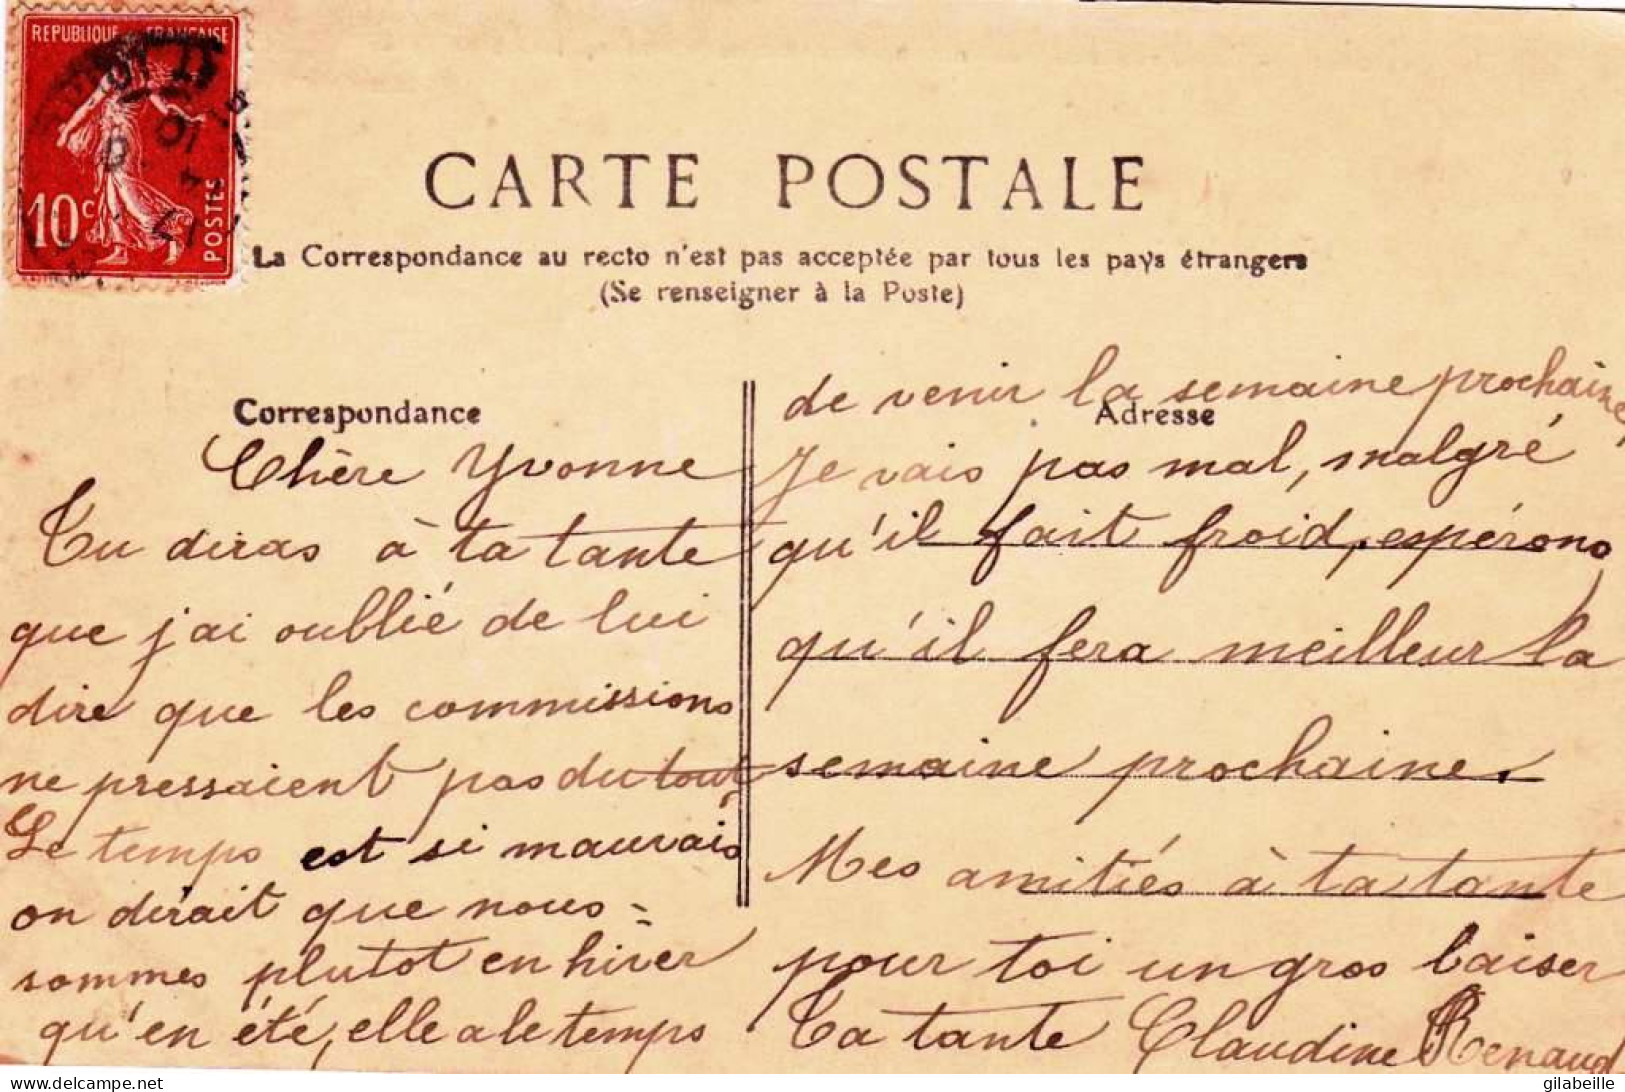 REPUBLIQUE FRANÇAISE
10c
POSTES
CARTE POSTALE
La Correspondance au recto n'est pas acceptée par tous les pays étrangers
(Se renseigner à la Poste)
Correspondance
Chère Yvonne
Tu diras à ta tante
que j'ai oublié de lui
dire que les commissions
ne pressaient pas du tout,
Le temps est si mauvais
on dirait que nous =
sommes plutot en hiver
qu'en été, elle a le temps
Adresse
de venir la semaine prochaine,
Je vais pas mal, malgré
qu'il fait froid, espérons
qu'il fera meilleur la
semaine prochaine.
Mes amitiés à ta tante
pour toi un gros baiser
Ta tante Claudine Renaud
gilabeille